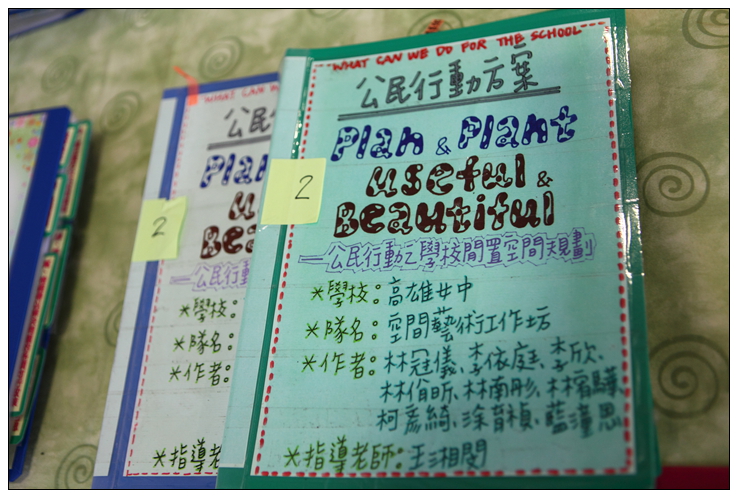 WHAT CAN WE DO FOR THE SCHOOL
公民行動方案
Plan & Plant
useful &
Beautiful
—公民行動之學校閒置空間規劃
*學校：高雄女中
*隊名：空間藝術工作坊
*作者：林冠儀、李依庭、李欣、
林俏昕、林南彤、林
柯彥綺、涂育禎、藍
*指導老師：王湘閔
2
WHAT CAN W
公民
Plan
u
Bea
—公民行動
*學校：
*隊名：
*作者：
*指導老
2